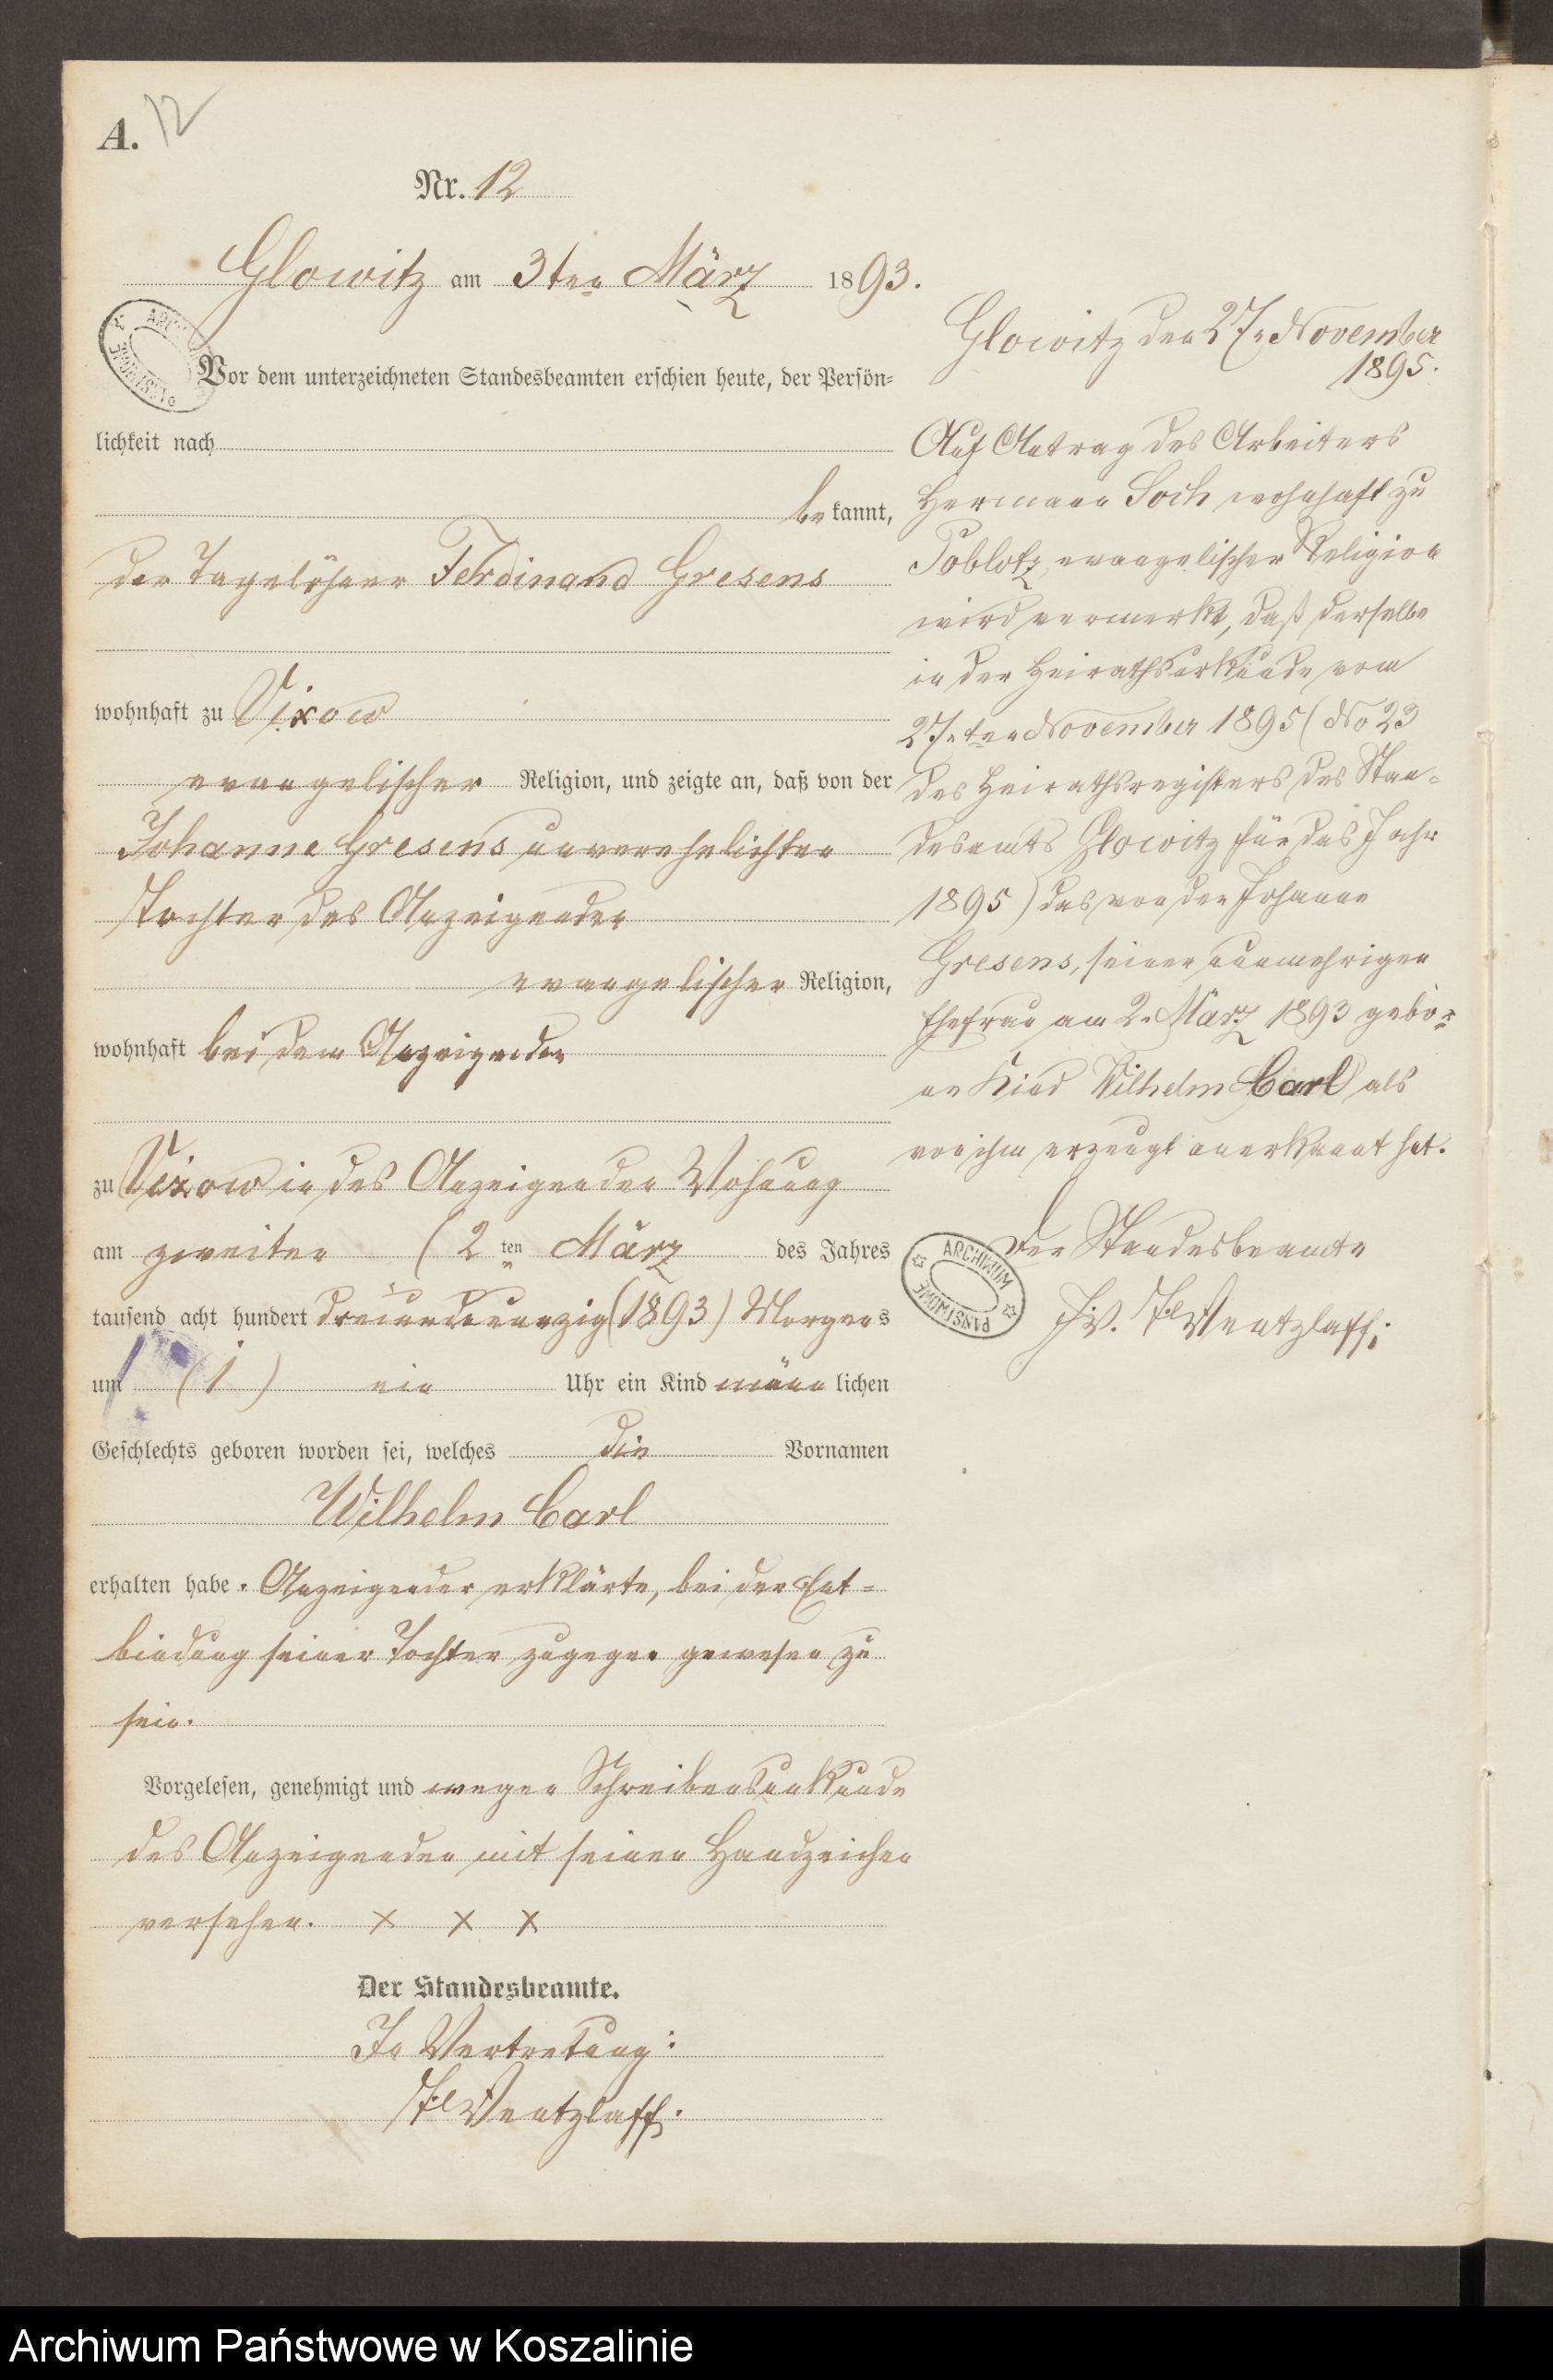 A. 12
Nr. 12
Glowitz am 3ten März 1893.
Vor dem unterzeichneten Standesbeamten erschien heute, der Persön=
lichkeit nach
bekannt,
der Tagelöhner Ferdinand Gresens
wohnhaft zu Vixow
evangelischer Religion, und zeigte an, daß von der
Johanne Gresens unverehelichten
Tochter des Anzeigenden
evangelischer Religion,
wohnhaft bei dem Anzeigenden
zu Vixow in des Anzeigenden Wohnung
am zweiten (2ten März des Jahres
tausend acht hundert dreiundneunzig (1893) Morgens
um (1) ein Uhr ein Kind männlichen
Geschlechts geboren worden sei, welches die Vornamen
Wilhelm Carl
erhalten habe. Anzeigender erklärte, bei der Ent=
bindung seiner Tochter zugegen gewesen zu
sein.
Vorgelesen, genehmigt und wegen Schreibensunkunde
des Anzeigenden mit seinen Handzeichen
versehen. x x x
Der Standesbeamte.
In Vertretung:
Wentzlaff.
Glowitz den 27. November
1895.
Auf Antrag des Arbeiters
Hermann Soch wohnhaft zu
Poblotz, evangelischer Religion
wird vermerkt, daß derselbe
in der Heirathsurkunde vom
27.ten November 1895 (No 23
des Heirathsregisters des Stan=
desamts Glowitz für das Jahr
1895) das von der Johanne
Gresens, seiner nunmehrigen
Ehefrau am 2. März 1893 gebor=
ne Kind Wilhelm Carl als
von ihm erzeugt anerkannt hat.
Der Standesbeamte
J.V. Wentzlaff.
ARCHIWUM
PAŃSTWOWE
Archiwum Państwowe w Koszalinie